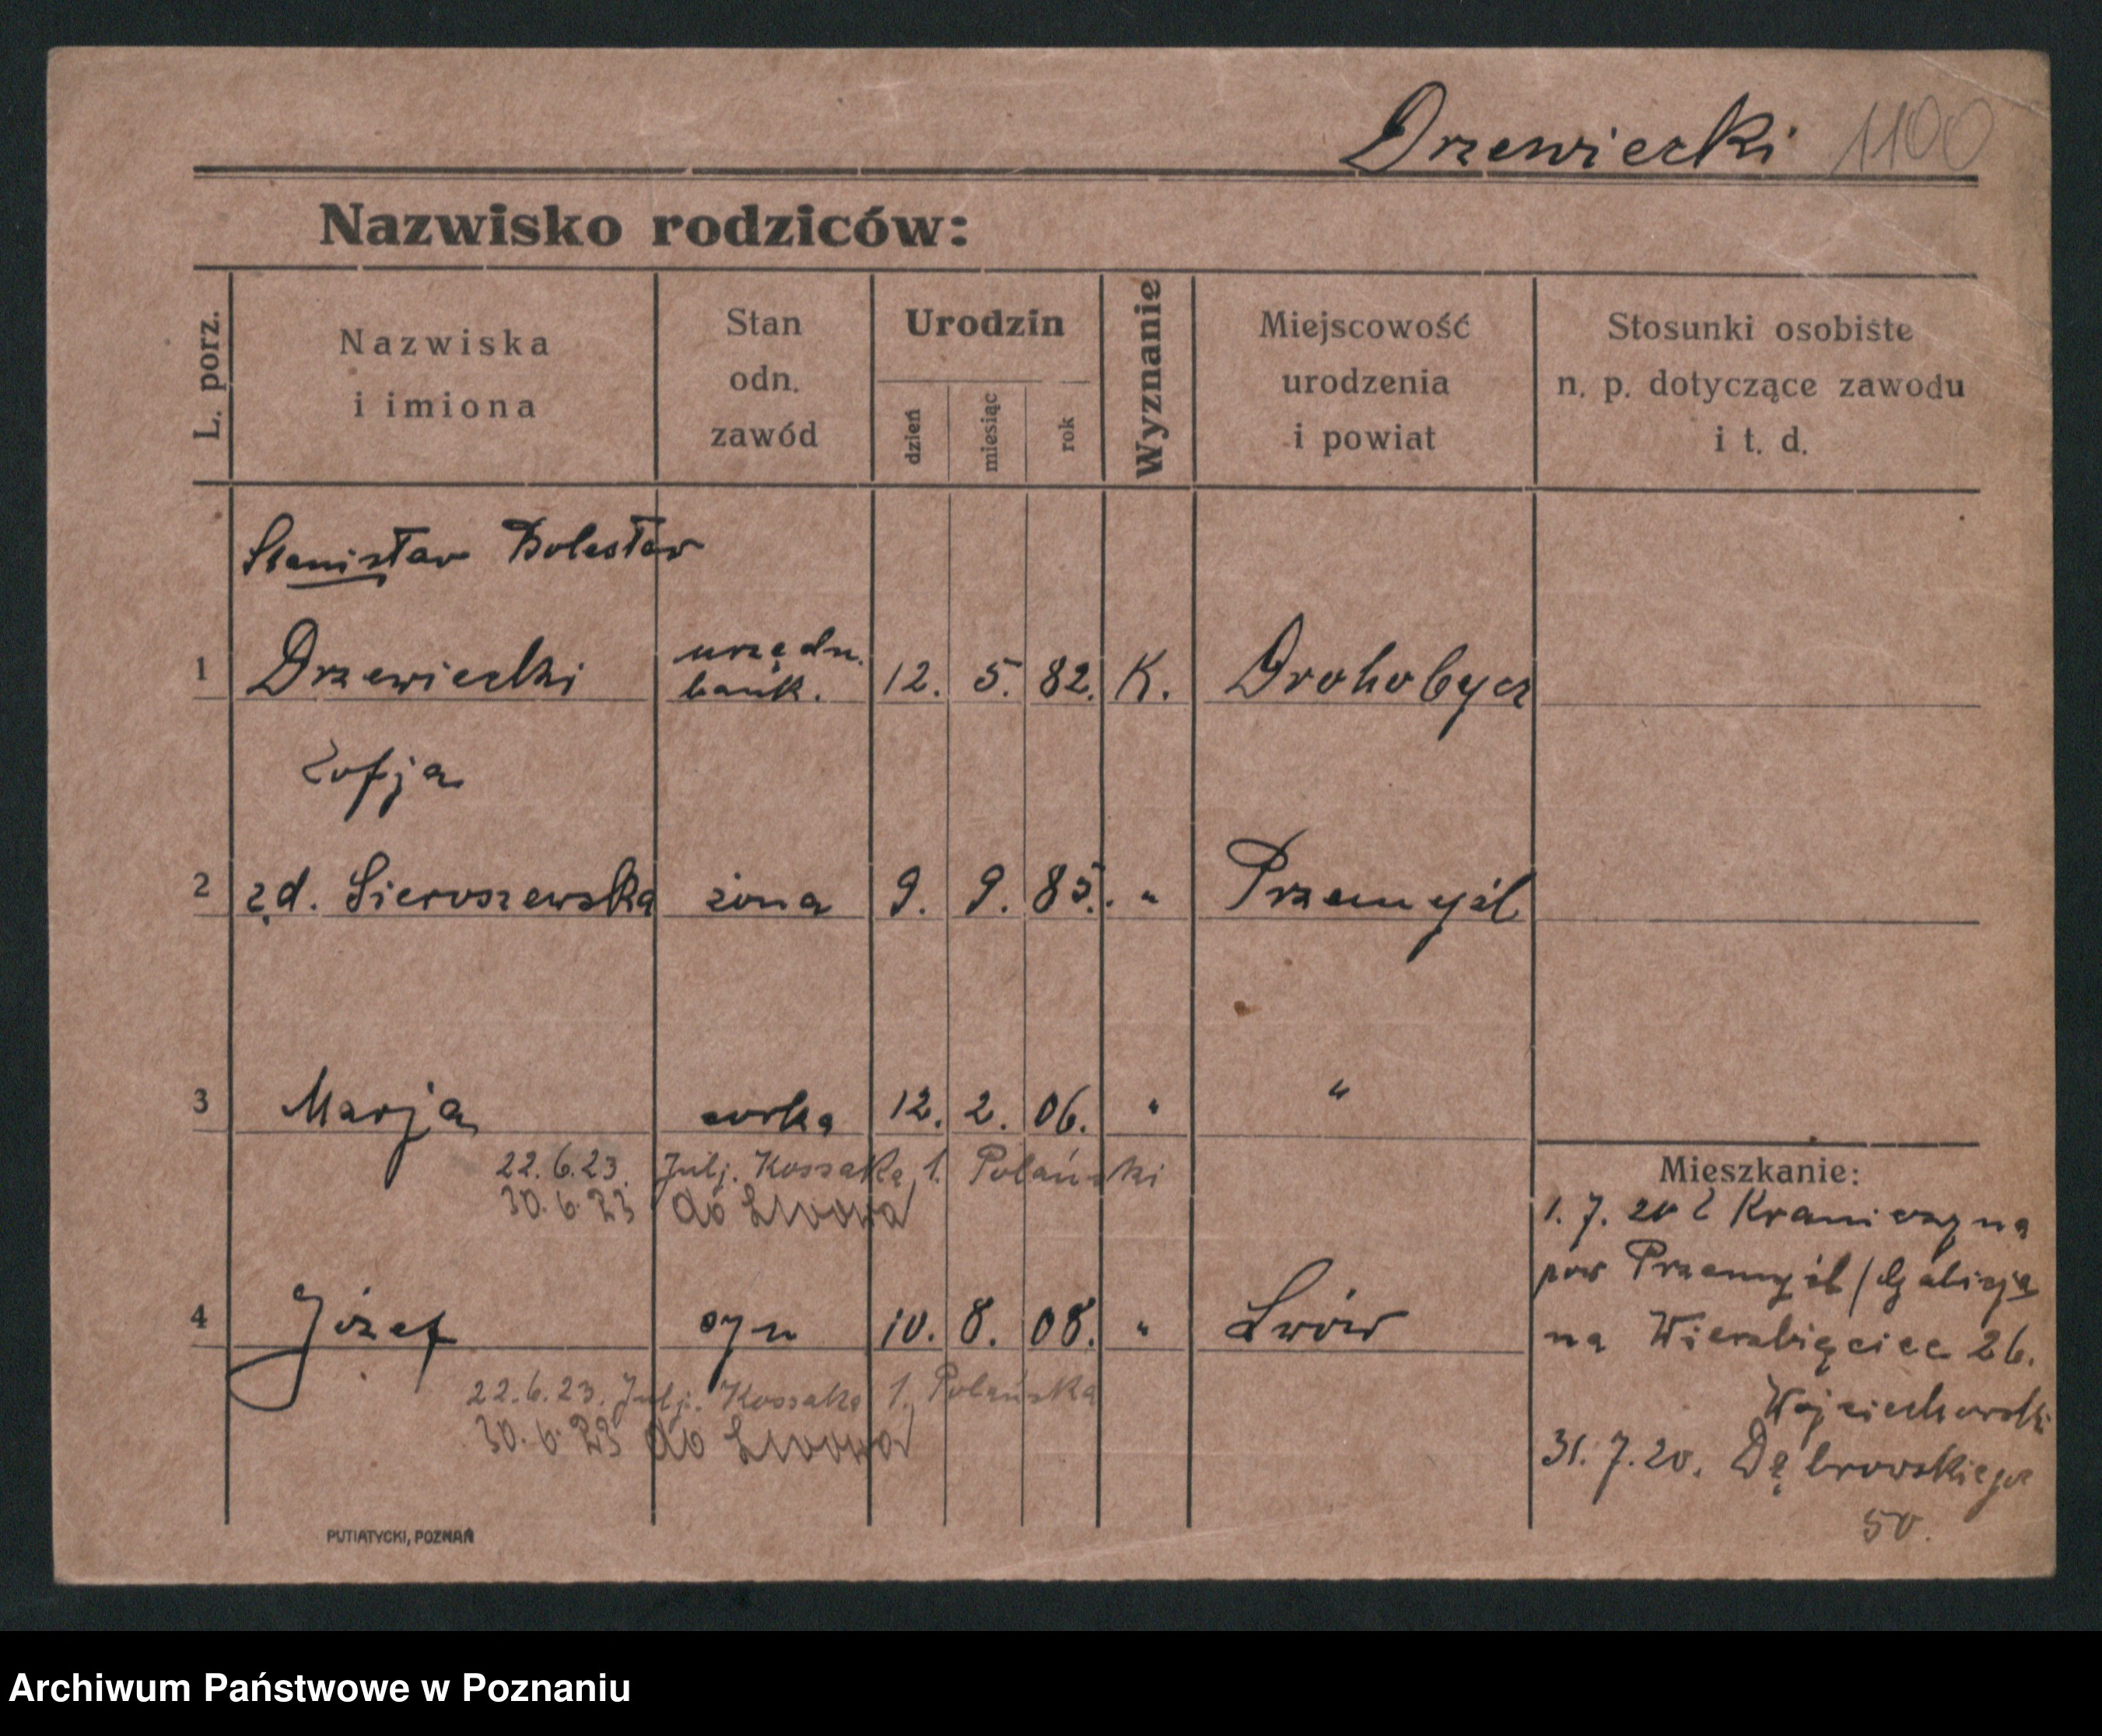 Drzewiecki 1100
Nazwisko rodziców:
L. porz.
Nazwiska
i imiona
Stan
odn.
zawód
Urodzin
dzień
miesiąc
rok
Wyznanie
Miejscowość
urodzenia
i powiat
Stosunki osobiste
n. p. dotyczące zawodu
i t. d.
Stanisław Bolesław
1 Drzewiecki urzędn. bank. 12. 5. 82. K. Drohobycz
Zofja
2 z d. Sieroszewska żona 9. 9. 85. " Przemyśl
3 Marja córka 12. 2. 06. " "
22.6.23. Julj. Kossaka 1. Polański
30.6.23 do Lwowa
4 Józef syn 10. 8. 08. " Lwów
22.6.23. Julj. Kossaka 1. Polańska
30.6.23 do Lwowa
Mieszkanie:
1.7.20 z
pow Przemyśl / Galicja
na Wierzbięcice 26.
Wojciechowski
31.7.20. Dąbrowskiego
50.
PUTIATYCKI, POZNAŃ
Archiwum Państwowe w Poznaniu